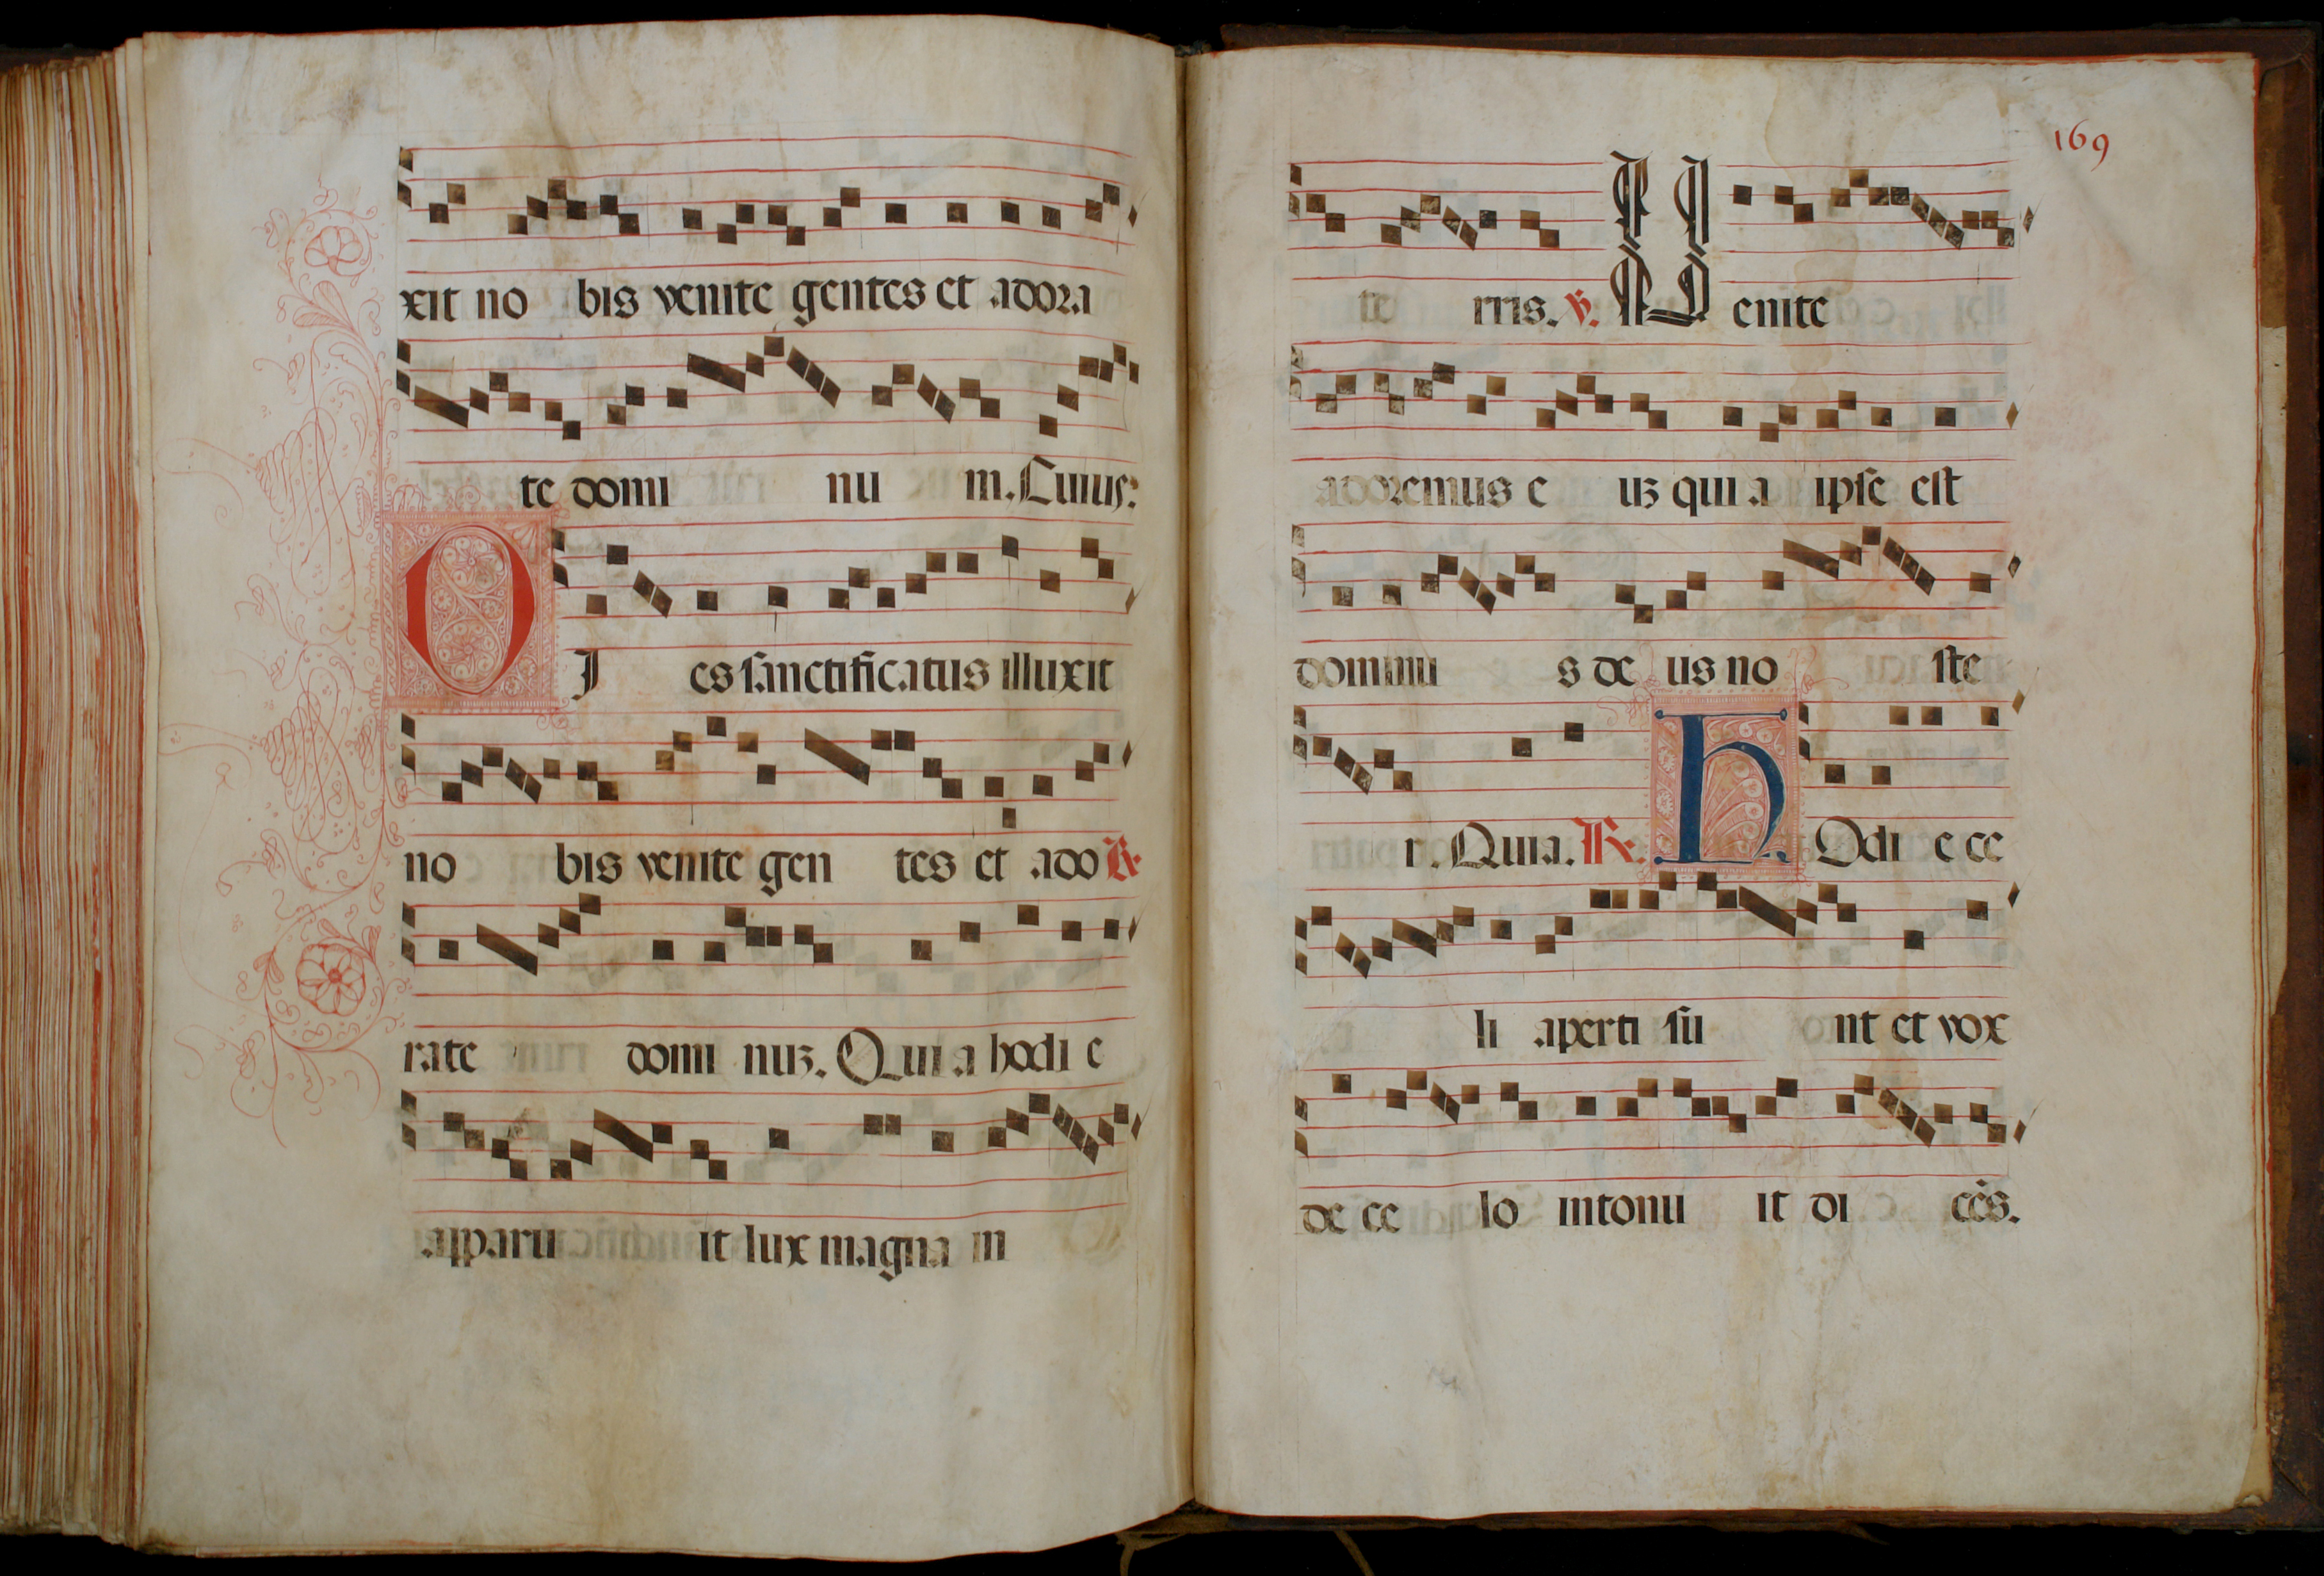 xit no bis venite gentes et adora
te domi nu m. Cuius:
D I es sanctificatus illuxit
no bis venite gen tes et ado ℟.
rate domi nuꝫ. Qui a hodi e
apparu it lux magna in
169
te rris. ℣. V enite
adoremus e uꝫ qui a ipse est
dominu s de us no ste
r. Quia. ℟. H Odi e ce
li aperti su nt et vox
de ce lo intonu it di cēs.